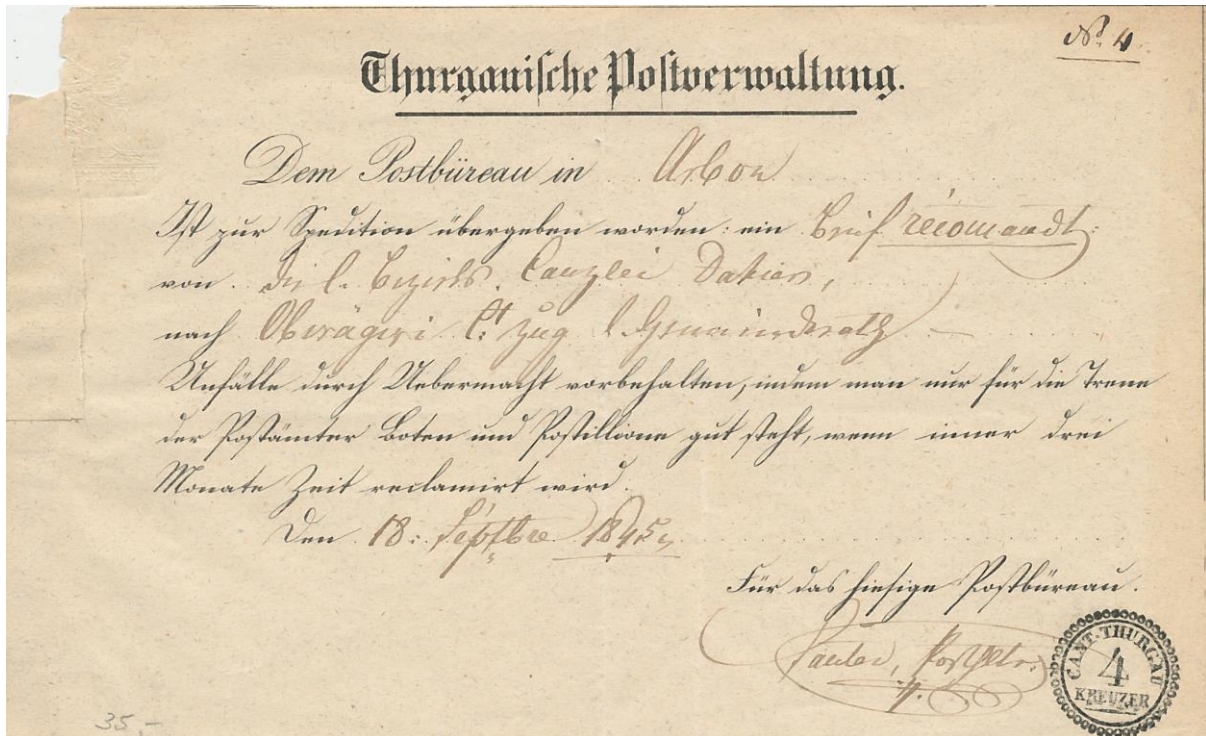 No. 4.
Thurgauische Postverwaltung.
Dem Postbüreau in Arbon
Ist zur Spedition übergeben worden: ein Brief recomandt:
von der l. Bezirks Canzlei
nach Oberägeri Ct. Zug l Gemeinderath
Unfälle durch Uebermacht vorbehalten, indem man nur für die Treue
der Postämter Boten und Postillione gut steht, wenn inner drei
Monate Zeit reclamirt wird.
Den 18: Septbre 1845
Für das hiesige Postbüreau.
CANT. THURGAU
4
KREUZER
35,-